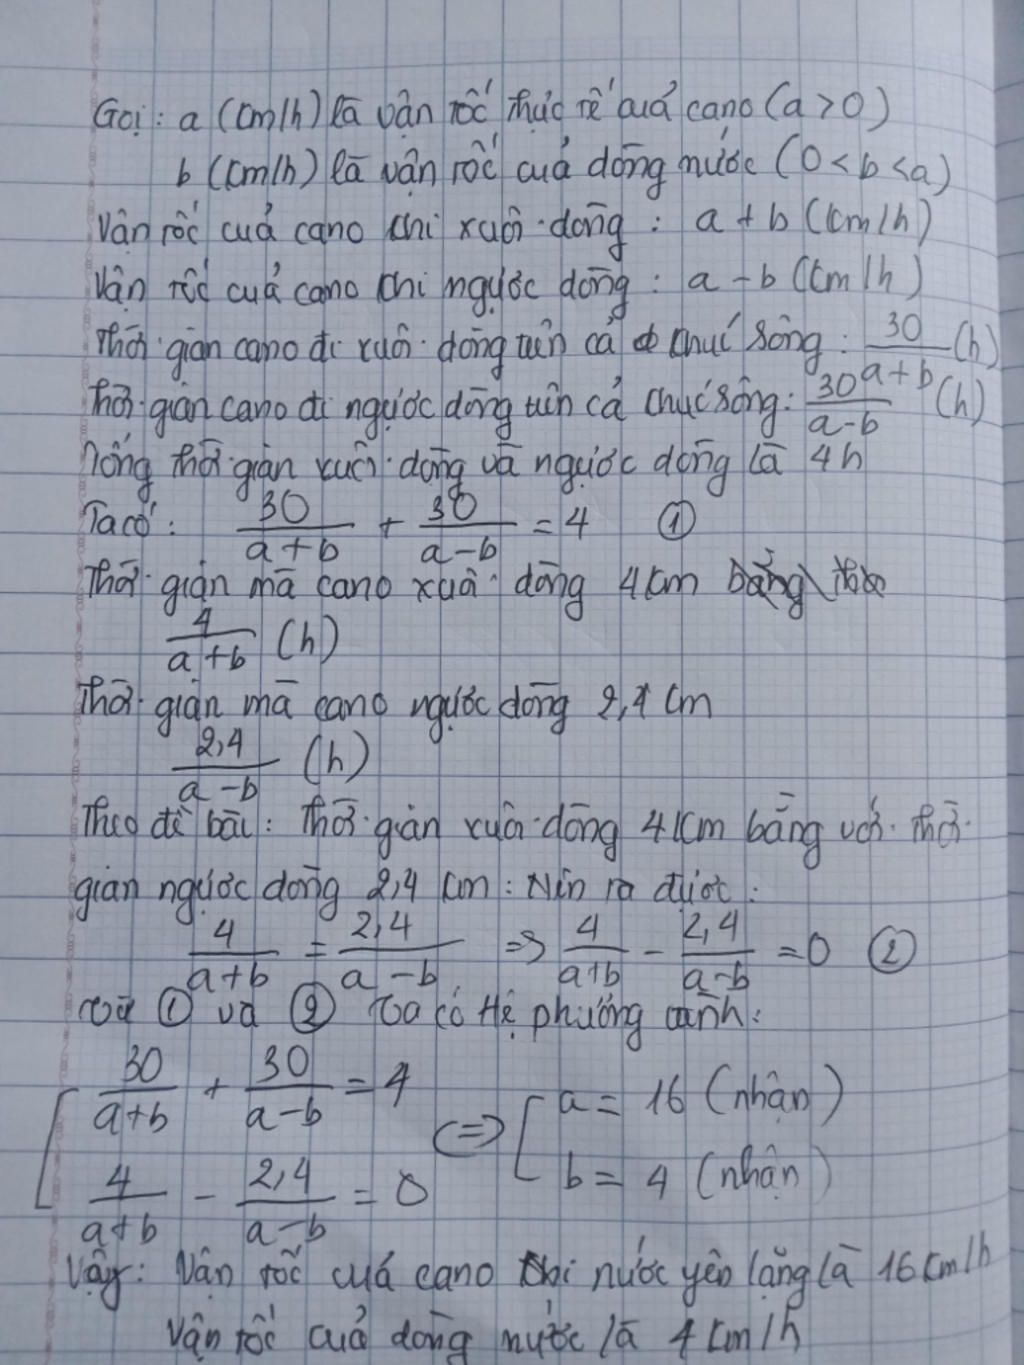 Gọi: a (km/h) là vận tốc thực tế của cano (a > 0)
b (km/h) là vận tốc của dòng nước (0 < b < a)
Vận tốc của cano khi xuôi dòng: a + b (km/h)
Vận tốc của cano khi ngược dòng: a - b (km/h)
Thời gian cano đi xuôi dòng trên cả khúc sông: 30/(a+b) (h)
Thời gian cano đi ngược dòng trên cả khúc sông: 30/(a-b) (h)
Tổng thời gian xuôi dòng và ngược dòng là 4h
Ta có: 30/(a+b) + 30/(a-b) = 4 ①
Thời gian mà cano xuôi dòng 4km bằng
4/(a+b) (h)
Thời gian mà cano ngược dòng 2,4 km
2,4/(a-b) (h)
Theo đề bài: Thời gian xuôi dòng 4km bằng với thời
gian ngược dòng 2,4 km: Nên ta được:
4/(a+b) = 2,4/(a-b) => 4/(a+b) - 2,4/(a-b) = 0 ②
Từ ① và ② ta có Hệ phương trình:
30/(a+b) + 30/(a-b) = 4
4/(a+b) - 2,4/(a-b) = 0
<=> a = 16 (nhận)
b = 4 (nhận)
Vậy: Vận tốc của cano khi nước yên lặng là 16km/h
Vận tốc của dòng nước là 4km/h